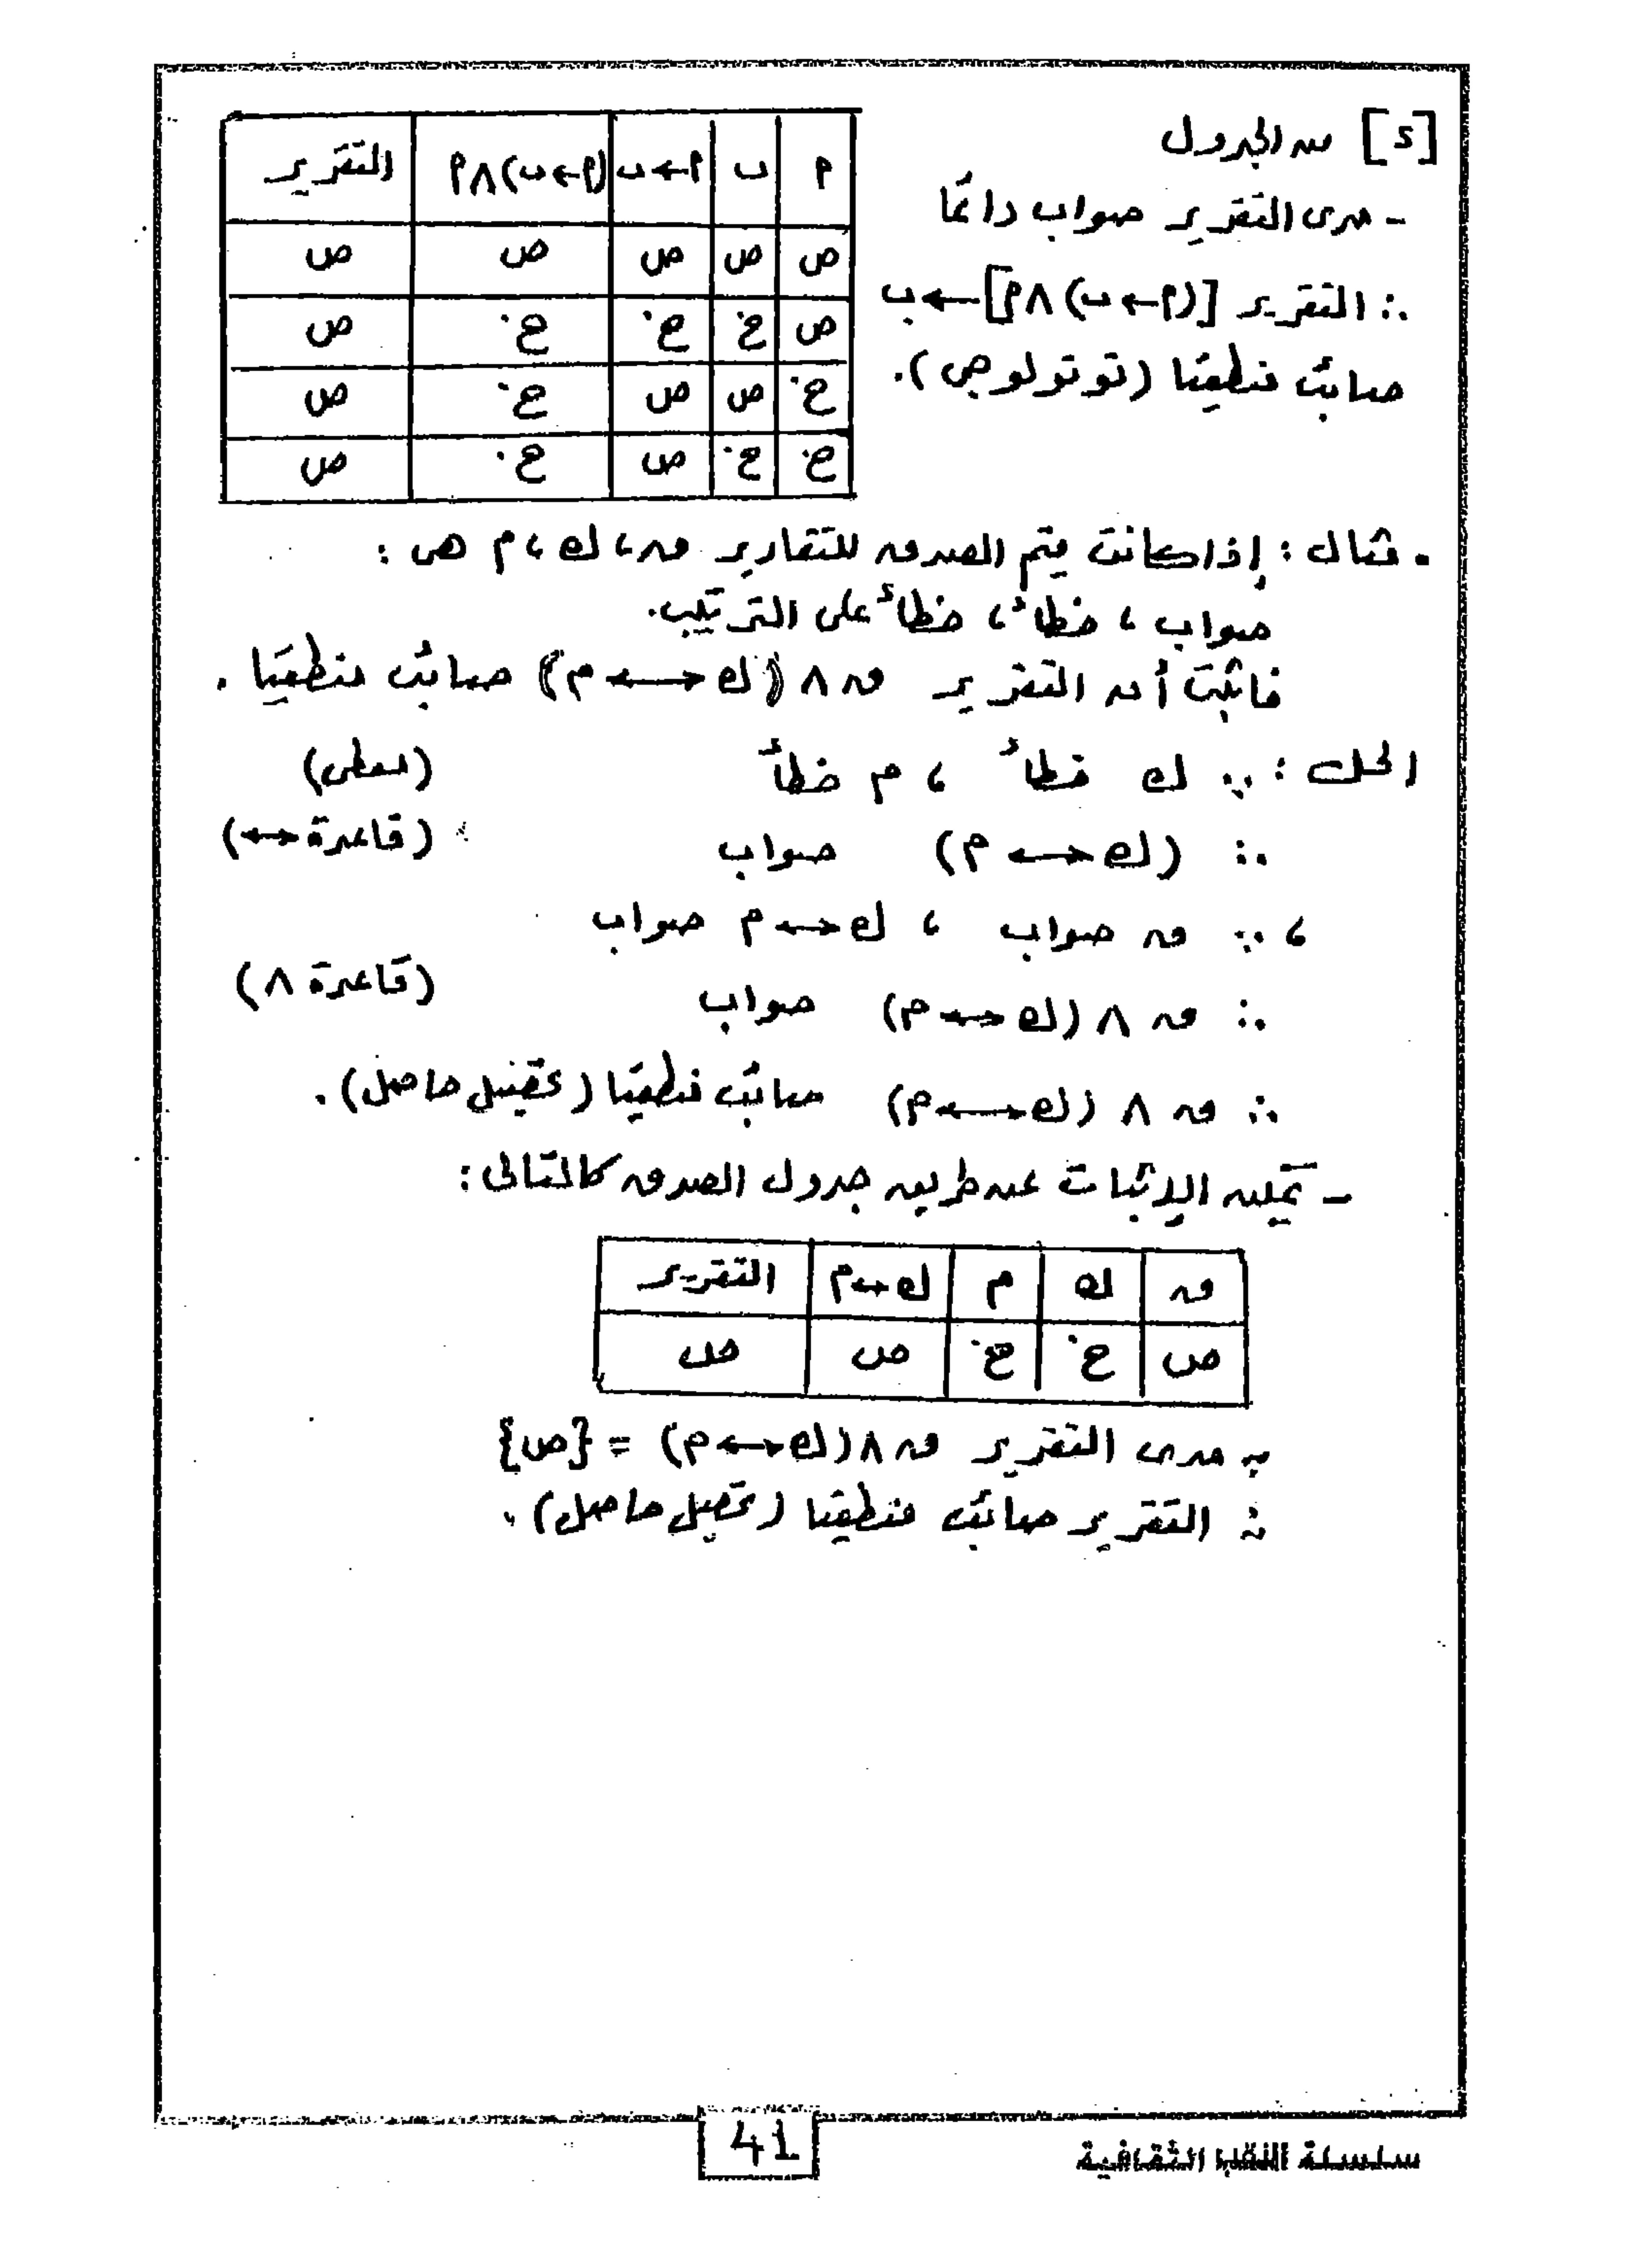 [٢] من الجدول
- مدى التقرير صواب دائمًا
∴ التقرير [(م ← ب) ∧ م] ← ب
صائب منطقيًا (توتولوجى).
م | ب | م ← ب | (م ← ب) ∧ م | التقرير
ص | ص | ص | ص | ص
ص | خ | خ | خ | ص
خ | ص | ص | خ | ص
خ | خ | ص | خ | ص
• مثال : إذا كانت قيم الصدق للتقارير ق، ك، م هى :
صواب ، خطأ ، خطأ على الترتيب.
فاثبت أن التقرير ق ∧ (ك ↔ م) صائب منطقيًا .
الحل : ∵ ك خطأ ، م خطأ (معطى)
∴ (ك ↔ م) صواب (قاعدة ↔)
، ∵ ق صواب ، ك ↔ م صواب
∴ ق ∧ (ك ↔ م) صواب (قاعدة ∧)
∴ ق ∧ (ك ↔ م) صائب منطقيًا (تحصيل حاصل) .
- يمكن الإثبات عن طريق جدول الصدق كالتالى :
ق | ك | م | ك ↔ م | التقرير
ص | خ | خ | ص | ص
∵ مدى التقرير ق ∧ (ك ↔ م) = {ص}
∴ التقرير صائب منطقيًا (تحصيل حاصل) .
41
سلسلة الثقافية